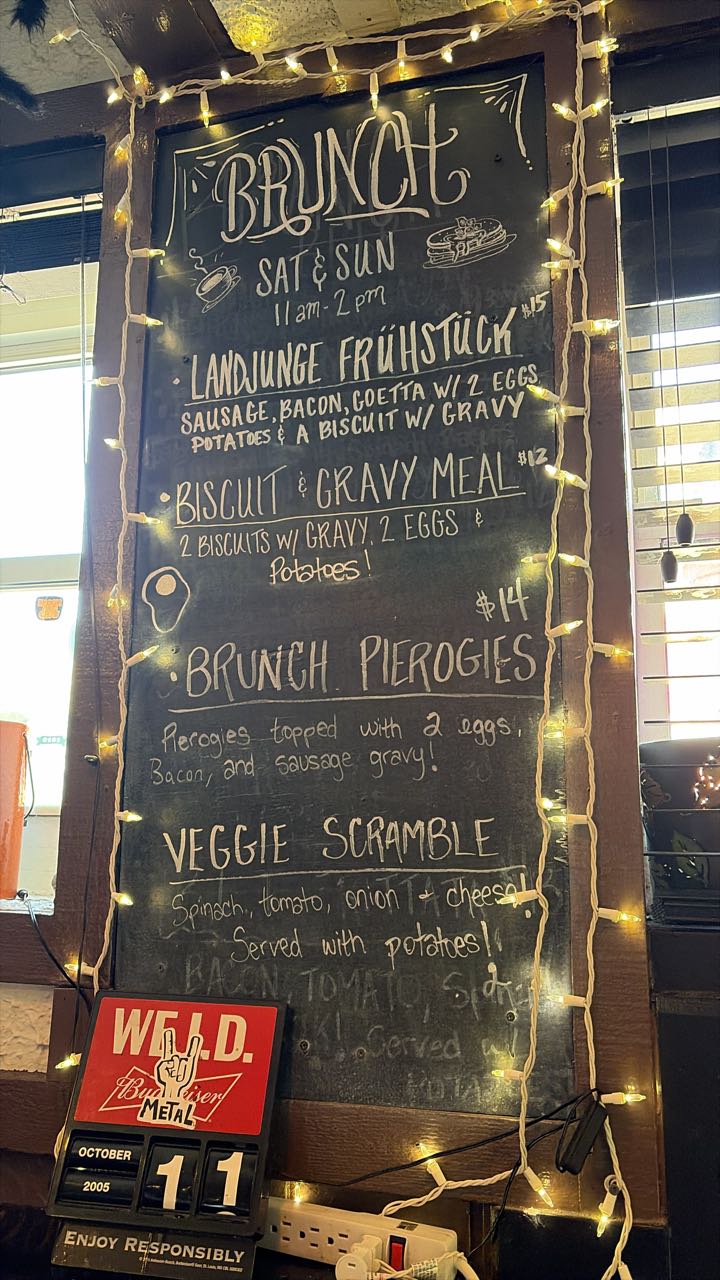 BRUNCH
SAT & SUN
11am-2pm
• LANDJUNGE FRÜHSTÜCK $15
SAUSAGE, BACON, GOETTA W/ 2 EGGS
POTATOES & A BISCUIT W/ GRAVY
• BISCUIT & GRAVY MEAL $12
2 BISCUITS W/ GRAVY, 2 EGGS &
Potatoes!
$14
• BRUNCH PIEROGIES
Pierogies topped with 2 eggs,
Bacon, and sausage gravy!
VEGGIE SCRAMBLE
Spinach, tomato, onion + cheese!
Served with potatoes!
BACON, TOMATO,
Served w/
WE I.D.
Budweiser
METAL
OCTOBER
2005
11
ENJOY RESPONSIBLY